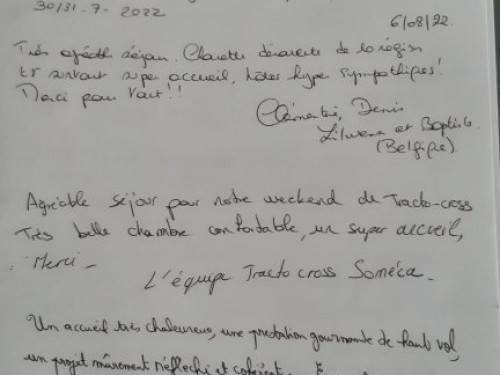 30/31-7-2022
6/08/22.
Très agréable séjour. Chouette découverte de la région
et surtout super accueil, hôtes hyper sympathiques!
Merci pour tout!!
Clémentine, Denis
Lilwenn et Baptiste
(Belgique).
Agréable séjour pour notre weekend de Tracto-cross
Très belle chambre confortable, un super accueil,
Merci -
L'équipe Tracto cross Soméca.
Un accueil très chaleureux, une prestation gourmande de haut vol,
un projet mûrement réfléchi et cohérent.